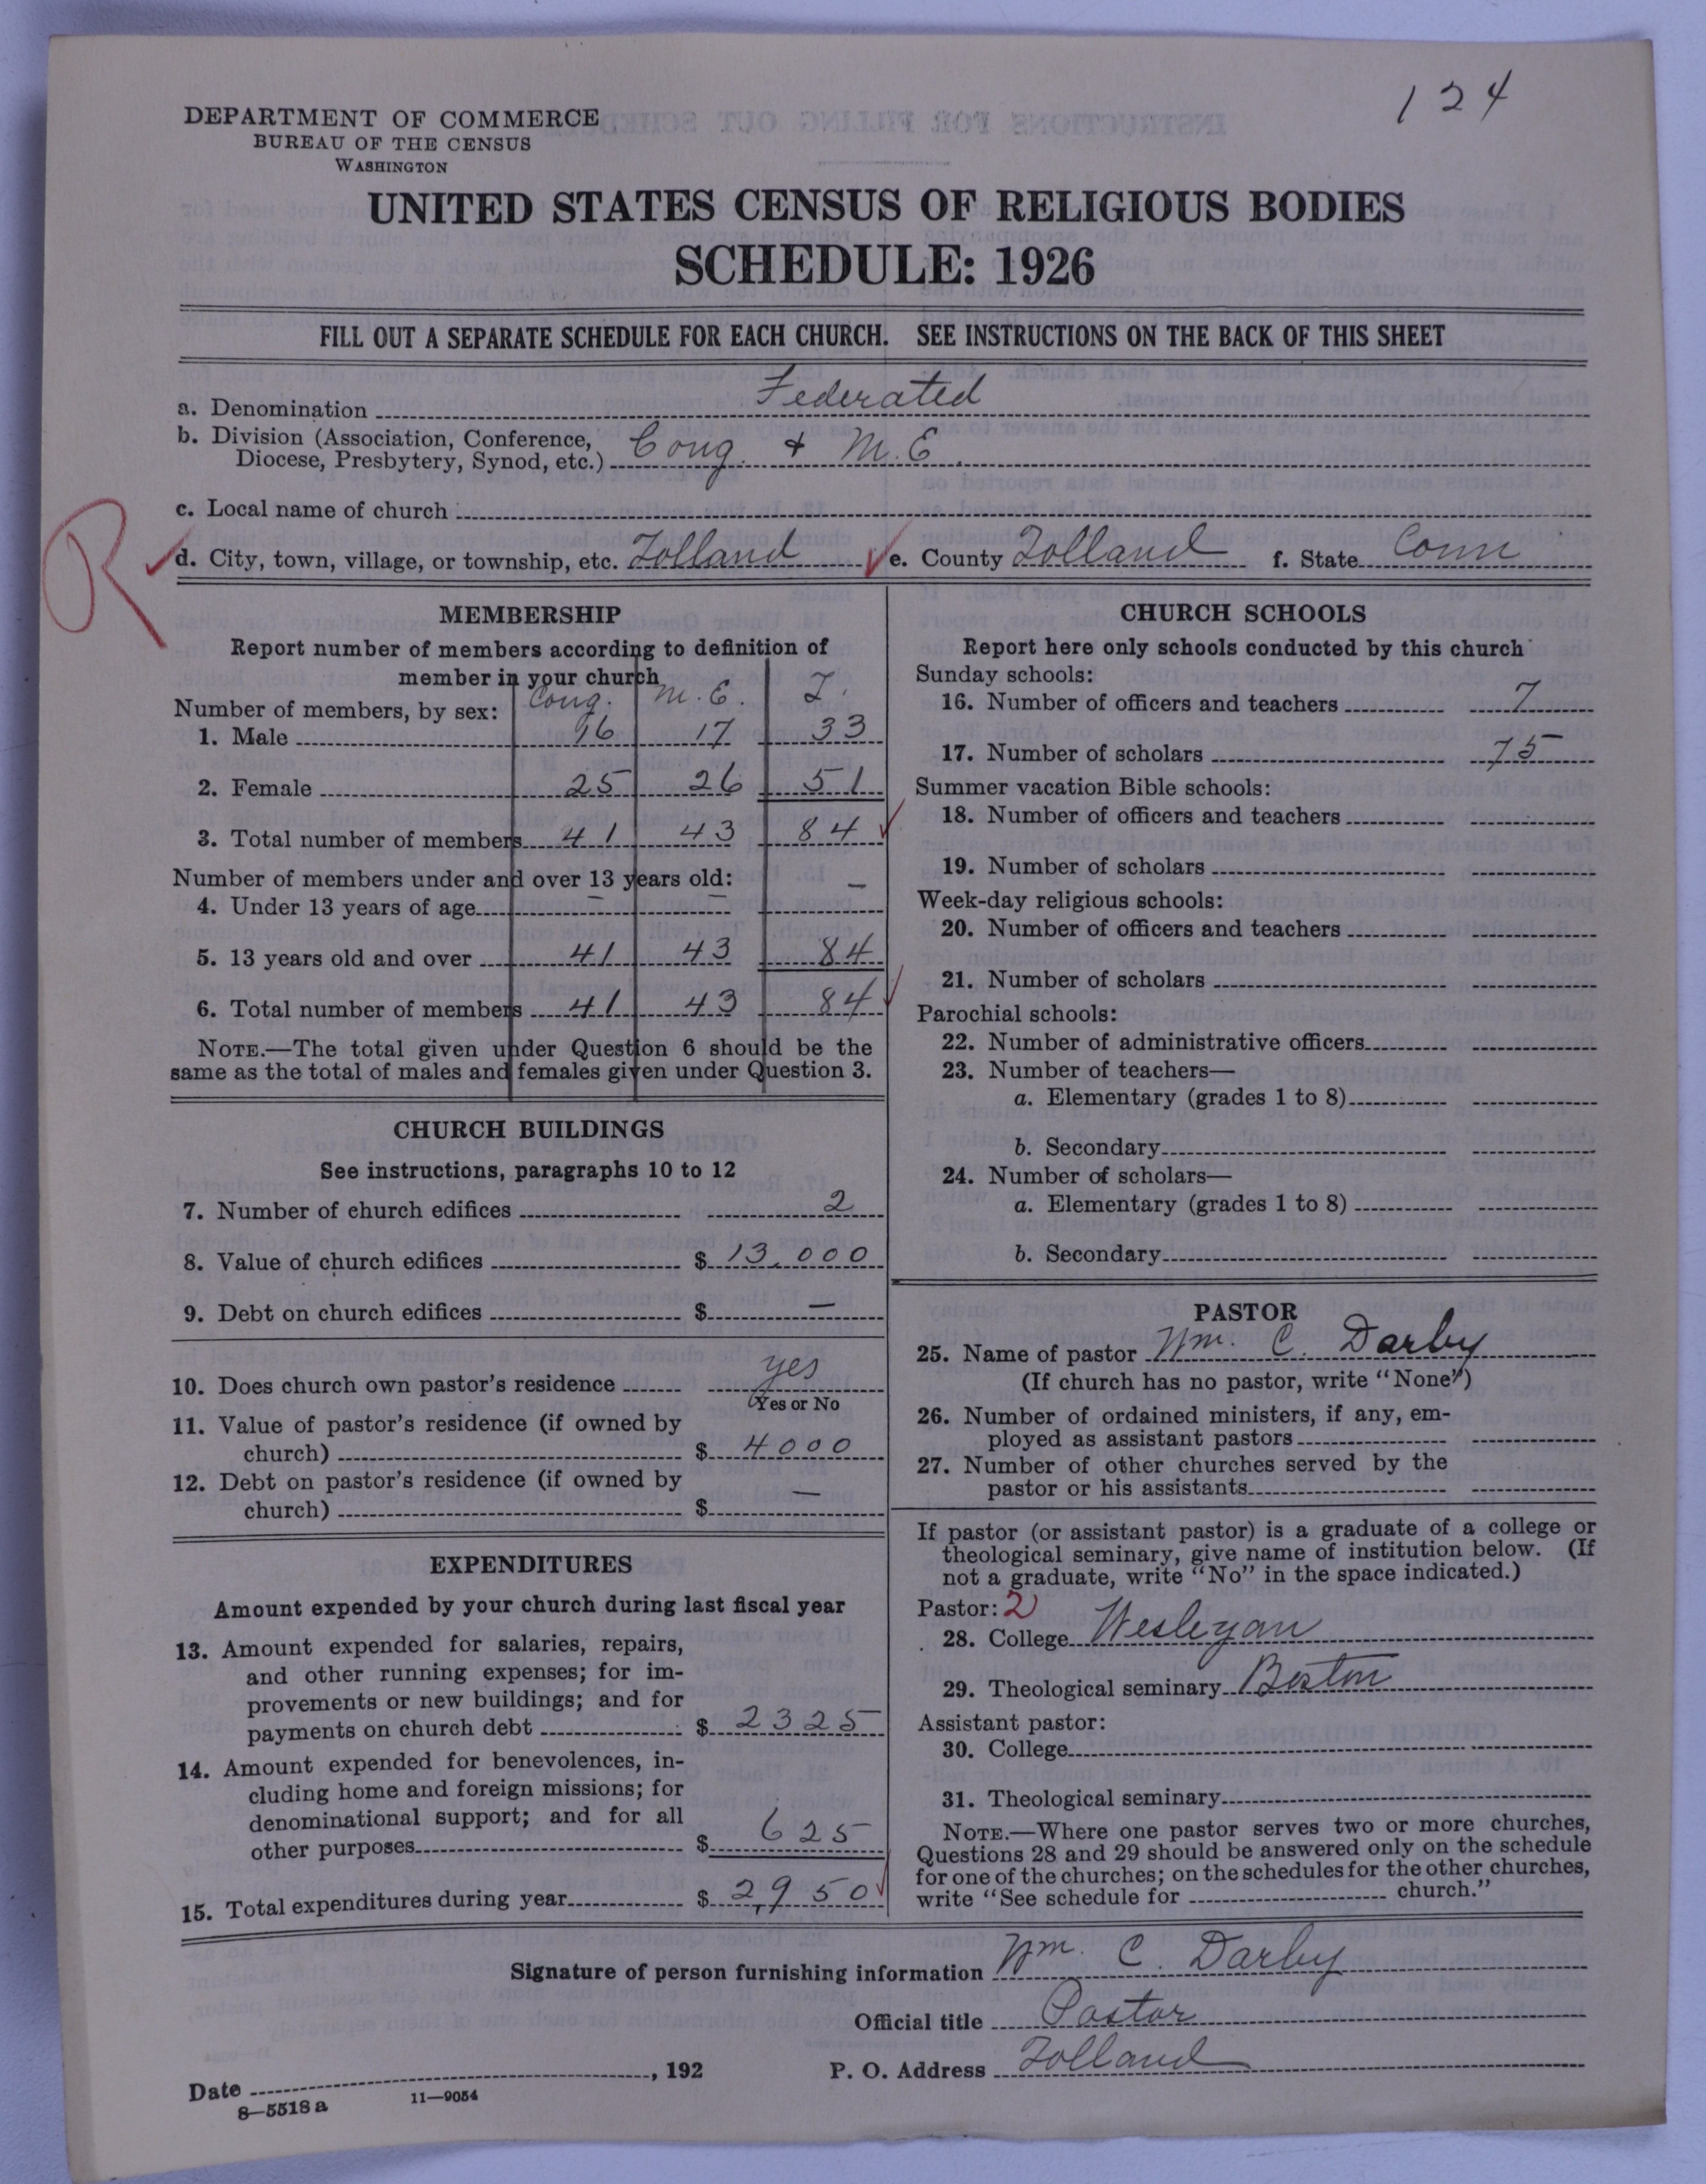 124
DEPARTMENT OF COMMERCE
BUREAU OF THE CENSUS
WASHINGTON
UNITED STATES CENSUS OF RELIGIOUS BODIES
SCHEDULE: 1926
FILL OUT A SEPARATE SCHEDULE FOR EACH CHURCH. SEE INSTRUCTIONS ON THE BACK OF THIS SHEET
a. Denomination Federated
b. Division (Association, Conference, Diocese, Presbytery, Synod, etc.) Cong. + M.E.
c. Local name of church
R
d. City, town, village, or township, etc. Tolland e. County Tolland f. State Conn
MEMBERSHIP
Report number of members according to definition of
member in your church
Cong. M.E. T.
Number of members, by sex:
1. Male 16 17 33
2. Female 25 26 51
3. Total number of members 41 43 84
Number of members under and over 13 years old:
4. Under 13 years of age – – –
5. 13 years old and over 41 43 84
6. Total number of members 41 43 84
NOTE.—The total given under Question 6 should be the
same as the total of males and females given under Question 3.
CHURCH BUILDINGS
See instructions, paragraphs 10 to 12
7. Number of church edifices 2
8. Value of church edifices $ 13,000
9. Debt on church edifices $ —
10. Does church own pastor's residence yes
Yes or No
11. Value of pastor's residence (if owned by
church) $ 4000
12. Debt on pastor's residence (if owned by
church) $ —
EXPENDITURES
Amount expended by your church during last fiscal year
13. Amount expended for salaries, repairs,
and other running expenses; for im-
provements or new buildings; and for
payments on church debt $ 2325
14. Amount expended for benevolences, in-
cluding home and foreign missions; for
denominational support; and for all
other purposes $ 625
15. Total expenditures during year $ 2,950
CHURCH SCHOOLS
Report here only schools conducted by this church
Sunday schools:
16. Number of officers and teachers 7
17. Number of scholars 75
Summer vacation Bible schools:
18. Number of officers and teachers
19. Number of scholars
Week-day religious schools:
20. Number of officers and teachers
21. Number of scholars
Parochial schools:
22. Number of administrative officers
23. Number of teachers—
a. Elementary (grades 1 to 8)
b. Secondary
24. Number of scholars—
a. Elementary (grades 1 to 8)
b. Secondary
PASTOR
25. Name of pastor Wm. C. Darby
(If church has no pastor, write "None")
26. Number of ordained ministers, if any, em-
ployed as assistant pastors
27. Number of other churches served by the
pastor or his assistants
If pastor (or assistant pastor) is a graduate of a college or
theological seminary, give name of institution below. (If
not a graduate, write "No" in the space indicated.)
Pastor: 2
28. College Wesleyan
29. Theological seminary Boston
Assistant pastor:
30. College
31. Theological seminary
NOTE.—Where one pastor serves two or more churches,
Questions 28 and 29 should be answered only on the schedule
for one of the churches; on the schedules for the other churches,
write "See schedule for church."
Signature of person furnishing information Wm. C. Darby
Official title Pastor
Date , 192 P. O. Address Tolland
8—5518 a 11—9054